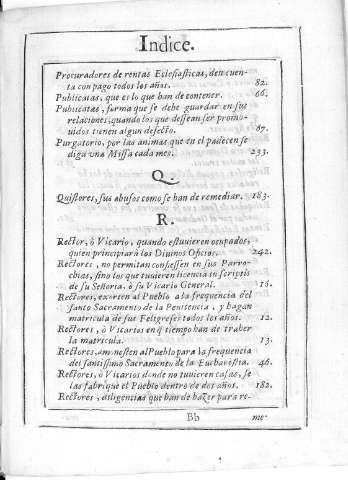 Indice.
Procuradores de rentas Eclesiasticas, den cuen-
ta con pago todos los años. 82.
Publicatas, que es lo que han de contener. 66.
Publicatas, forma que se debe guardar en sus
relaciones, quando los que dessean ser promo-
uidos tienen algun defecto. 67.
Purgatorio, por las animas que en el padecen se
diga vna Missa cada mes. 233.
Q
Quistores, sus abusos como se han de remediar. 183.
R.
Rector, ò Vicario, quando estuvieren ocupados,
quien principiarà los Diuinos Oficios. 242.
Rectores, no permitan confessen en sus Parro-
chias, sino los que tuvieren licencia in scriptis
de su Señoria, ò su Vicario General. 16.
Rectores, exorten al Pueblo a la frequencia del
santo Sacramento de la Penitencia, y hagan
matricula de sus Feligreses todos los años. 12.
Rectores, ò Vicarios en q̃ tiempo han de traher
la matricula. 13.
Rectores, amonesten al Pueblo para la frequencia
del santissimo Sacramento de la Eucharistia. 46.
Rectores, ò Vicarios donde no tuvieren casas, se
las fabrique el Pueblo dentro de dos años. 182.
Rectores, diligencias que han de hazer para re-
Bb me-